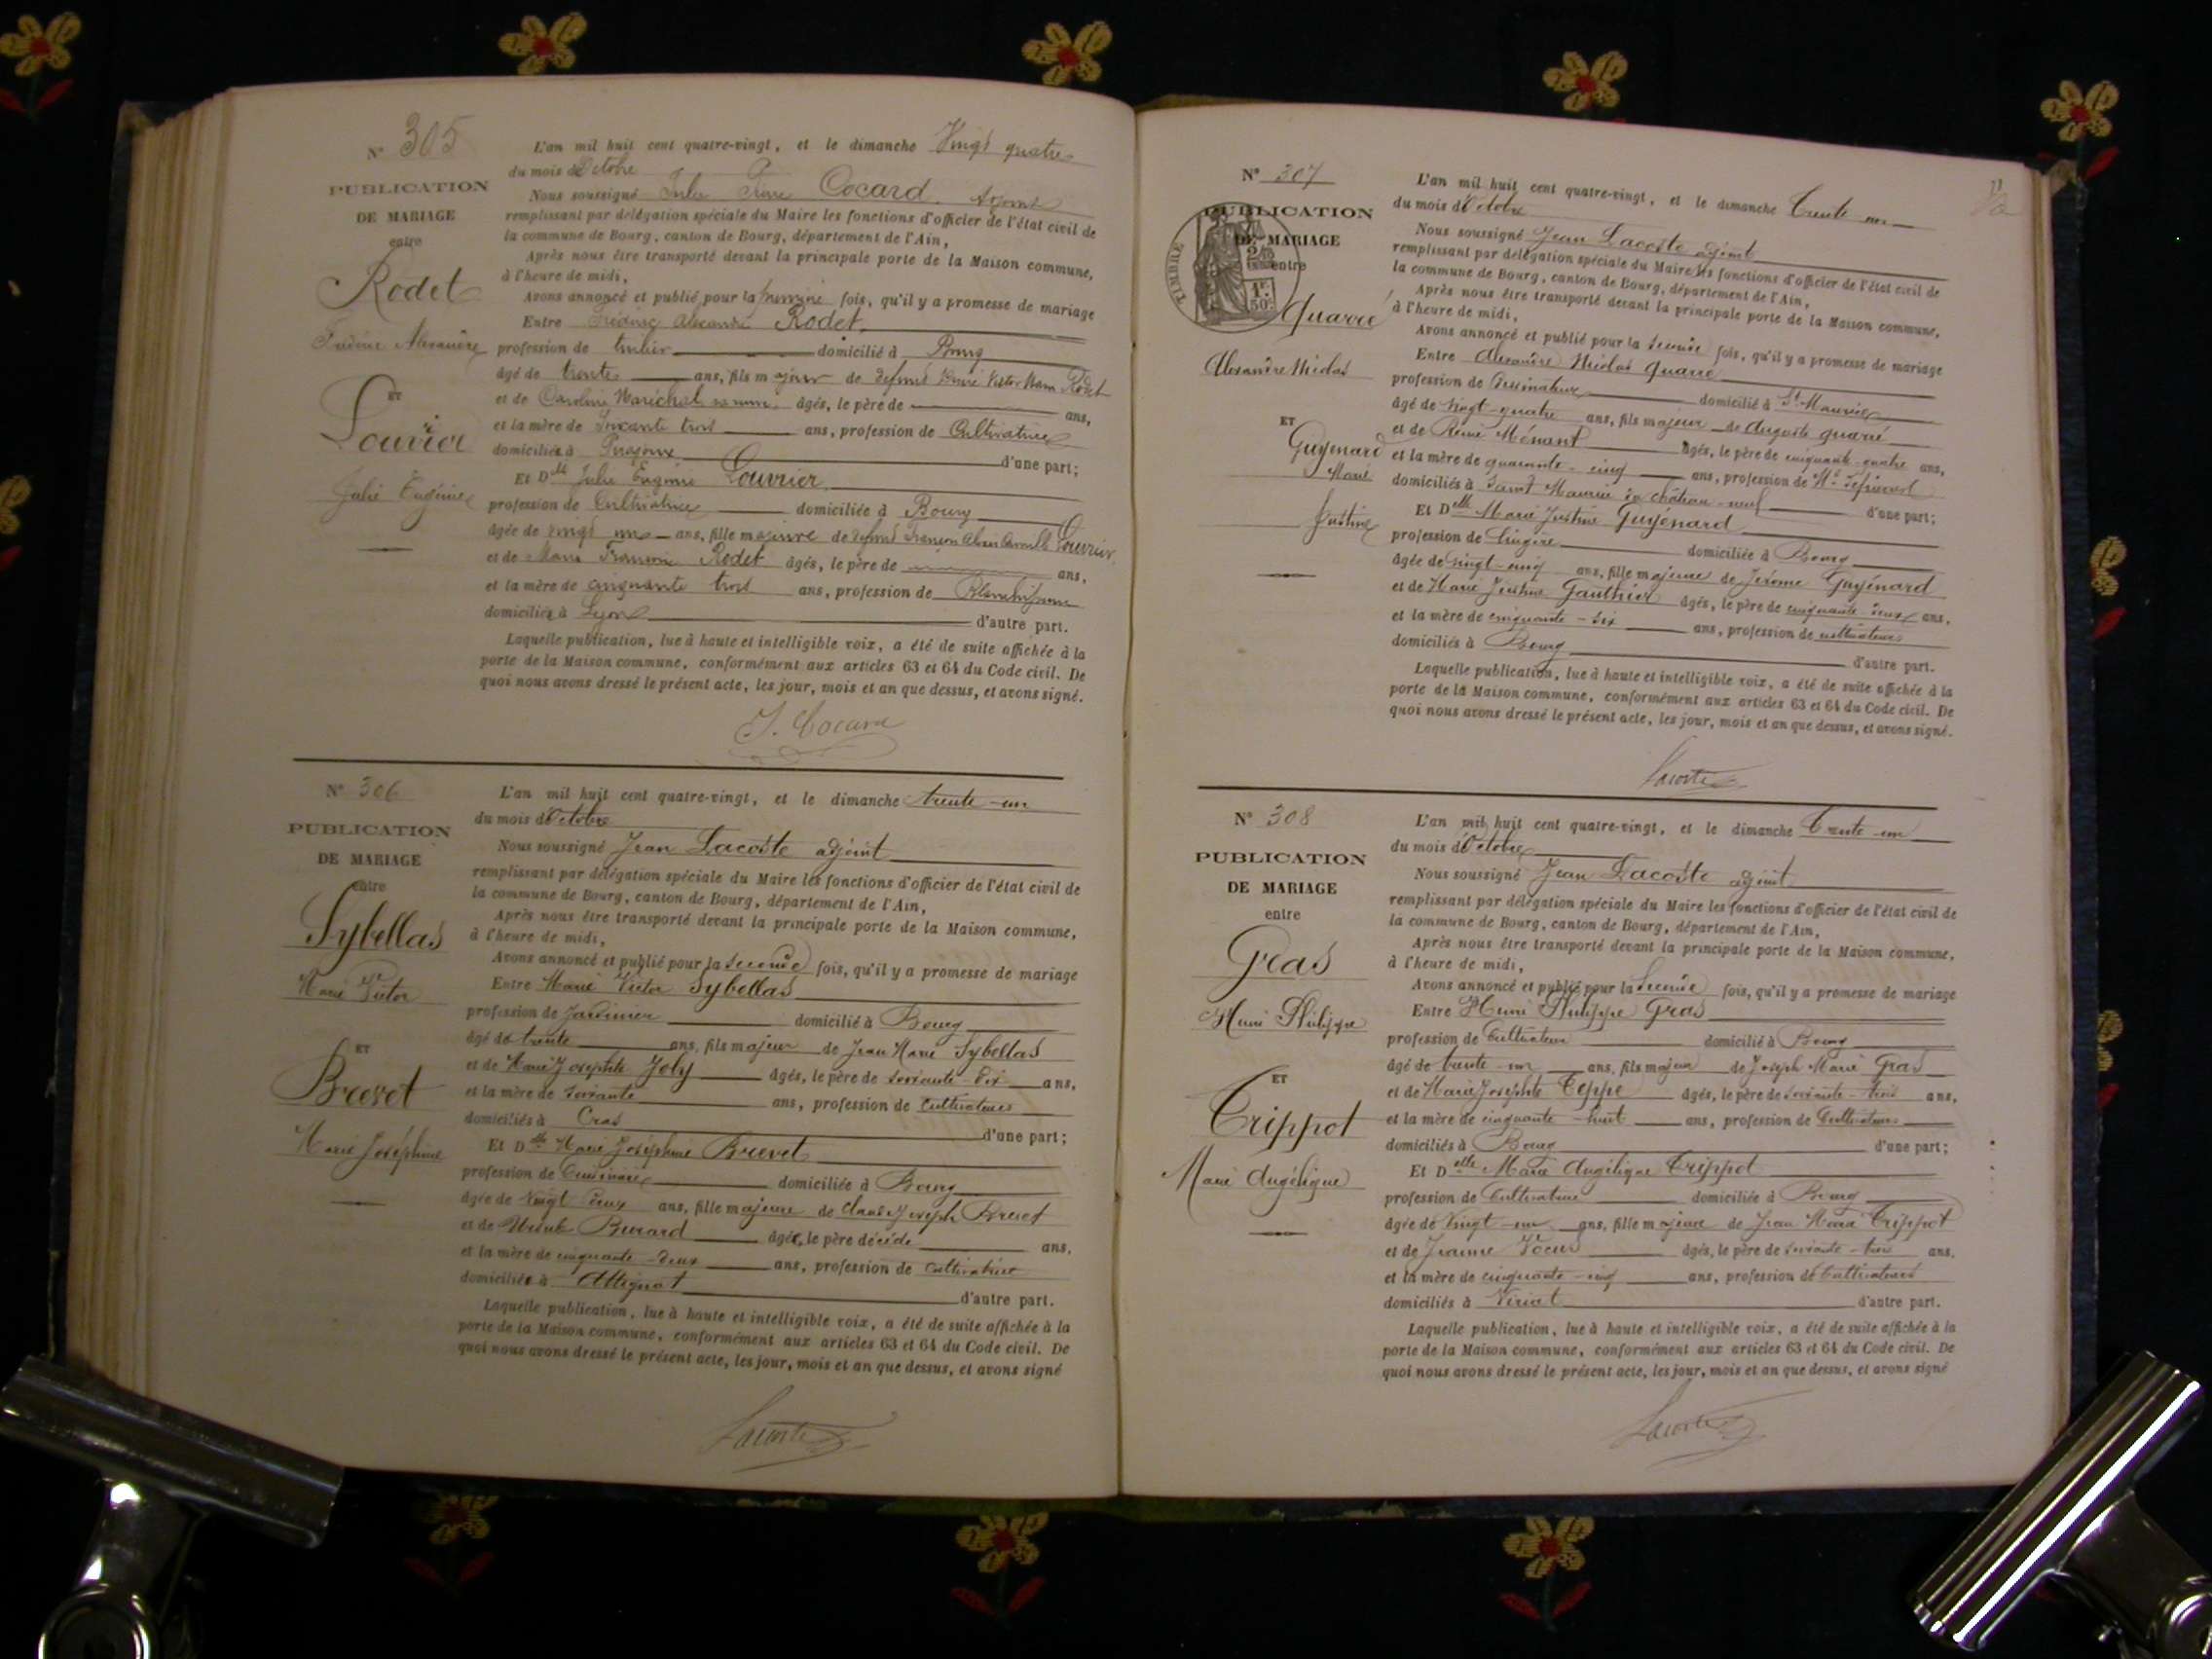 N° 305
PUBLICATION
DE MARIAGE
entre
Rodet
Frédéric Alexandre
ET
Louvier
Julie Eugénie
L'an mil huit cent quatre-vingt, et le dimanche Vingt quatre
du mois d'Octobre
Nous soussigné Jules Pierre Cocard, Adjoint
remplissant par délégation spéciale du Maire les fonctions d'officier de l'état civil de
la commune de Bourg, canton de Bourg, département de l'Ain,
Après nous être transporté devant la principale porte de la Maison commune,
à l'heure de midi,
Avons annoncé et publié pour la première fois, qu'il y a promesse de mariage
Entre Frédéric Alexandre Rodet
profession de domicilié à Bourg
âgé de trente ans, fils majeur de défunt Rodet
et de Caroline Maréchal âgés, le père de ans,
et la mère de Soixante trois ans, profession de Cultivatrice
domiciliés à d'une part;
Et Dlle Julie Eugénie Louvier
profession de Cultivatrice domiciliée à Bourg
âgée de vingt un ans, fille majeure de défunt François Louvier
et de Marie Rodet âgés, le père de ans,
et la mère de cinquante trois ans, profession de
domiciliés à Lyon d'autre part.
Laquelle publication, lue à haute et intelligible voix, a été de suite affichée à la
porte de la Maison commune, conformément aux articles 63 et 64 du Code civil. De
quoi nous avons dressé le présent acte, les jour, mois et an que dessus, et avons signé.
J. Cocard
N° 306
PUBLICATION
DE MARIAGE
entre
Sybellas
Marie Victor
ET
Brevet
Marie Joséphine
L'an mil huit cent quatre-vingt, et le dimanche trente-un
du mois d'Octobre
Nous soussigné Jean Lacoste adjoint
remplissant par délégation spéciale du Maire les fonctions d'officier de l'état civil de
la commune de Bourg, canton de Bourg, département de l'Ain,
Après nous être transporté devant la principale porte de la Maison commune,
à l'heure de midi,
Avons annoncé et publié pour la seconde fois, qu'il y a promesse de mariage
Entre Marie Victor Sybellas
profession de Jardinier domicilié à Bourg
âgé de trente ans, fils majeur de Jean Marie Sybellas
et de Marie Josephte Joly âgés, le père de soixante-dix ans,
et la mère de soixante ans, profession de cultivateurs
domiciliés à Cras d'une part;
Et Dlle Marie Joséphine Brevet
profession de Cuisinière domiciliée à Bourg
âgée de Vingt deux ans, fille majeure de Claude Joseph Brevet
et de Ursule Burard âgés, le père décédé ans,
et la mère de cinquante-deux ans, profession de cultivatrice
domiciliés à Attignat d'autre part.
Laquelle publication, lue à haute et intelligible voix, a été de suite affichée à la
porte de la Maison commune, conformément aux articles 63 et 64 du Code civil. De
quoi nous avons dressé le présent acte, les jour, mois et an que dessus, et avons signé
Lacoste
N° 307
PUBLICATION
DE MARIAGE
entre
TIMBRE
1F. 50c.
Quarré
Alexandre Nicolas
ET
Guyénard
Marie
Justine
L'an mil huit cent quatre-vingt, et le dimanche Trente un
du mois d'Octobre
Nous soussigné Jean Lacoste adjoint
remplissant par délégation spéciale du Maire les fonctions d'officier de l'état civil de
la commune de Bourg, canton de Bourg, département de l'Ain,
Après nous être transporté devant la principale porte de la Maison commune,
à l'heure de midi,
Avons annoncé et publié pour la seconde fois, qu'il y a promesse de mariage
Entre Alexandre Nicolas Quarré
profession de Dessinateur domicilié à St Maurice
âgé de vingt-quatre ans, fils majeur de Auguste Quarré
et de Reine Ménant âgés, le père de cinquante-quatre ans,
et la mère de quarante-cinq ans, profession de
domiciliés à Saint Maurice de château-neuf d'une part;
Et Delle Marie Justine Guyénard
profession de Lingère domiciliée à Bourg
âgée de vingt-cinq ans, fille majeure de Jérome Guyénard
et de Marie Justine Gauthier âgés, le père de cinquante-deux ans,
et la mère de cinquante-six ans, profession de cultivateurs
domiciliés à Bourg d'autre part.
Laquelle publication, lue à haute et intelligible voix, a été de suite affichée à la
porte de la Maison commune, conformément aux articles 63 et 64 du Code civil. De
quoi nous avons dressé le présent acte, les jour, mois et an que dessus, et avons signé.
Lacoste
N° 308
PUBLICATION
DE MARIAGE
entre
Gras
Henri Philippe
ET
Trippot
Marie Angélique
L'an mil huit cent quatre-vingt, et le dimanche Trente-un
du mois d'Octobre
Nous soussigné Jean Lacoste adjoint
remplissant par délégation spéciale du Maire les fonctions d'officier de l'état civil de
la commune de Bourg, canton de Bourg, département de l'Ain,
Après nous être transporté devant la principale porte de la Maison commune,
à l'heure de midi,
Avons annoncé et publié pour la seconde fois, qu'il y a promesse de mariage
Entre Henri Philippe Gras
profession de Cultivateur domicilié à Bourg
âgé de trente-un ans, fils majeur de Joseph Marie Gras
et de Marie Josephte Teppe âgés, le père de soixante-trois ans,
et la mère de cinquante-huit ans, profession de Cultivateurs
domiciliés à Bourg d'une part;
Et Delle Marie Angélique Trippot
profession de Cultivatrice domiciliée à Bourg
âgée de Vingt-un ans, fille majeure de Jean Marie Trippot
et de Jeanne âgés, le père de soixante-trois ans,
et la mère de cinquante-cinq ans, profession de Cultivateurs
domiciliés à Viriat d'autre part.
Laquelle publication, lue à haute et intelligible voix, a été de suite affichée à la
porte de la Maison commune, conformément aux articles 63 et 64 du Code civil. De
quoi nous avons dressé le présent acte, les jour, mois et an que dessus, et avons signé
Lacoste